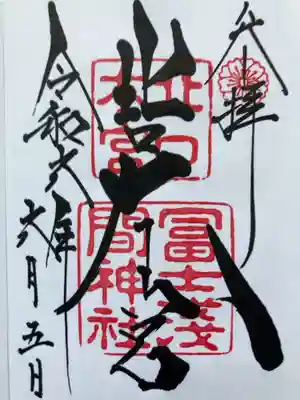 奉拝
北口
本宮
冨士浅
間神社
令和六年
六月五日